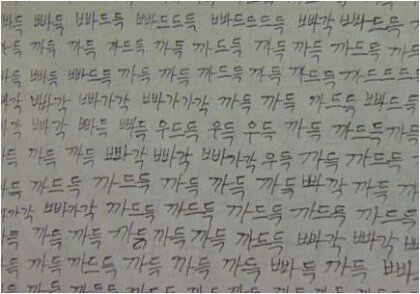 빠득 빠드득 빠드드득 빠드드드득 빠각 빠드드득
까득 까득 까드득 까득 까드득 까득 까득 까드드득
빠득 빠득 빠드득 까득 까득 까드득 까득 까드드드득
빠각 빠가각 빠가가각 까득 까드득 까득 빠드득
빠각 빠각 빠득 빠득 우드득 우득 우득 까득 까드득
까득 까득 빠각 빠각 빠가각 우득 까득 까드득
까득 까드득 까득 까득 까득 빠각 까득
빠가각 빠가각 까드득 까드득 까드득 까드득 까드득
까득 까득 까득 까득 까드득 빠각 빠각
까득 까드득 까득 까드득 까득 빠득 까득